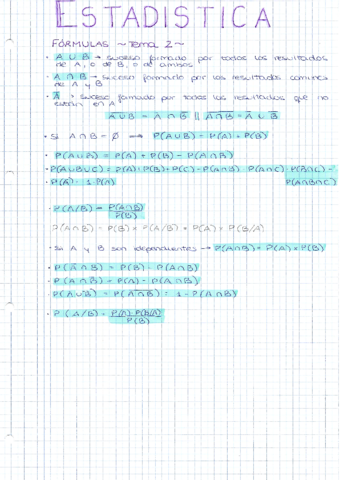 ESTADISTICA
FÓRMULAS ~ Tema 2 ~
· A ∪ B → suceso formado por todos los resultados
de A, o de B, o de ambos
· A ∩ B → suceso formado por los resultados comunes
de A y B
· A̅ → suceso formado por todos los resultados que no
están en A
A̅ ∪ B̅ = A̅ ∩ B̅ || A̅ ∩ B̅ = A̅ ∪ B̅
· Si A ∩ B = ∅ → P(A∪B) = P(A) + P(B)
· P(A∪B) = P(A) + P(B) - P(A∩B)
· P(A∪B∪C) = P(A) + P(B) + P(C) - P(A∩B) - P(A∩C) - P(B∩C) -
· P(A) = 1 - P(A̅) P(A∩B∩C)
· P(A/B) = P(A∩B)
P(B)
P(A∩B) = P(B) × P(A/B) = P(A) × P(B/A)
· Si A y B son independientes → P(A∩B) = P(A) × P(B)
· P(A̅∩B) = P(B) - P(A∩B)
· P(A∩B̅) = P(A) - P(A∩B)
· P(A̅∪B̅) = P(A̅∩B̅) = 1 - P(A∩B)
· P(A/B) = P(A)·P(B/A)
P(B)